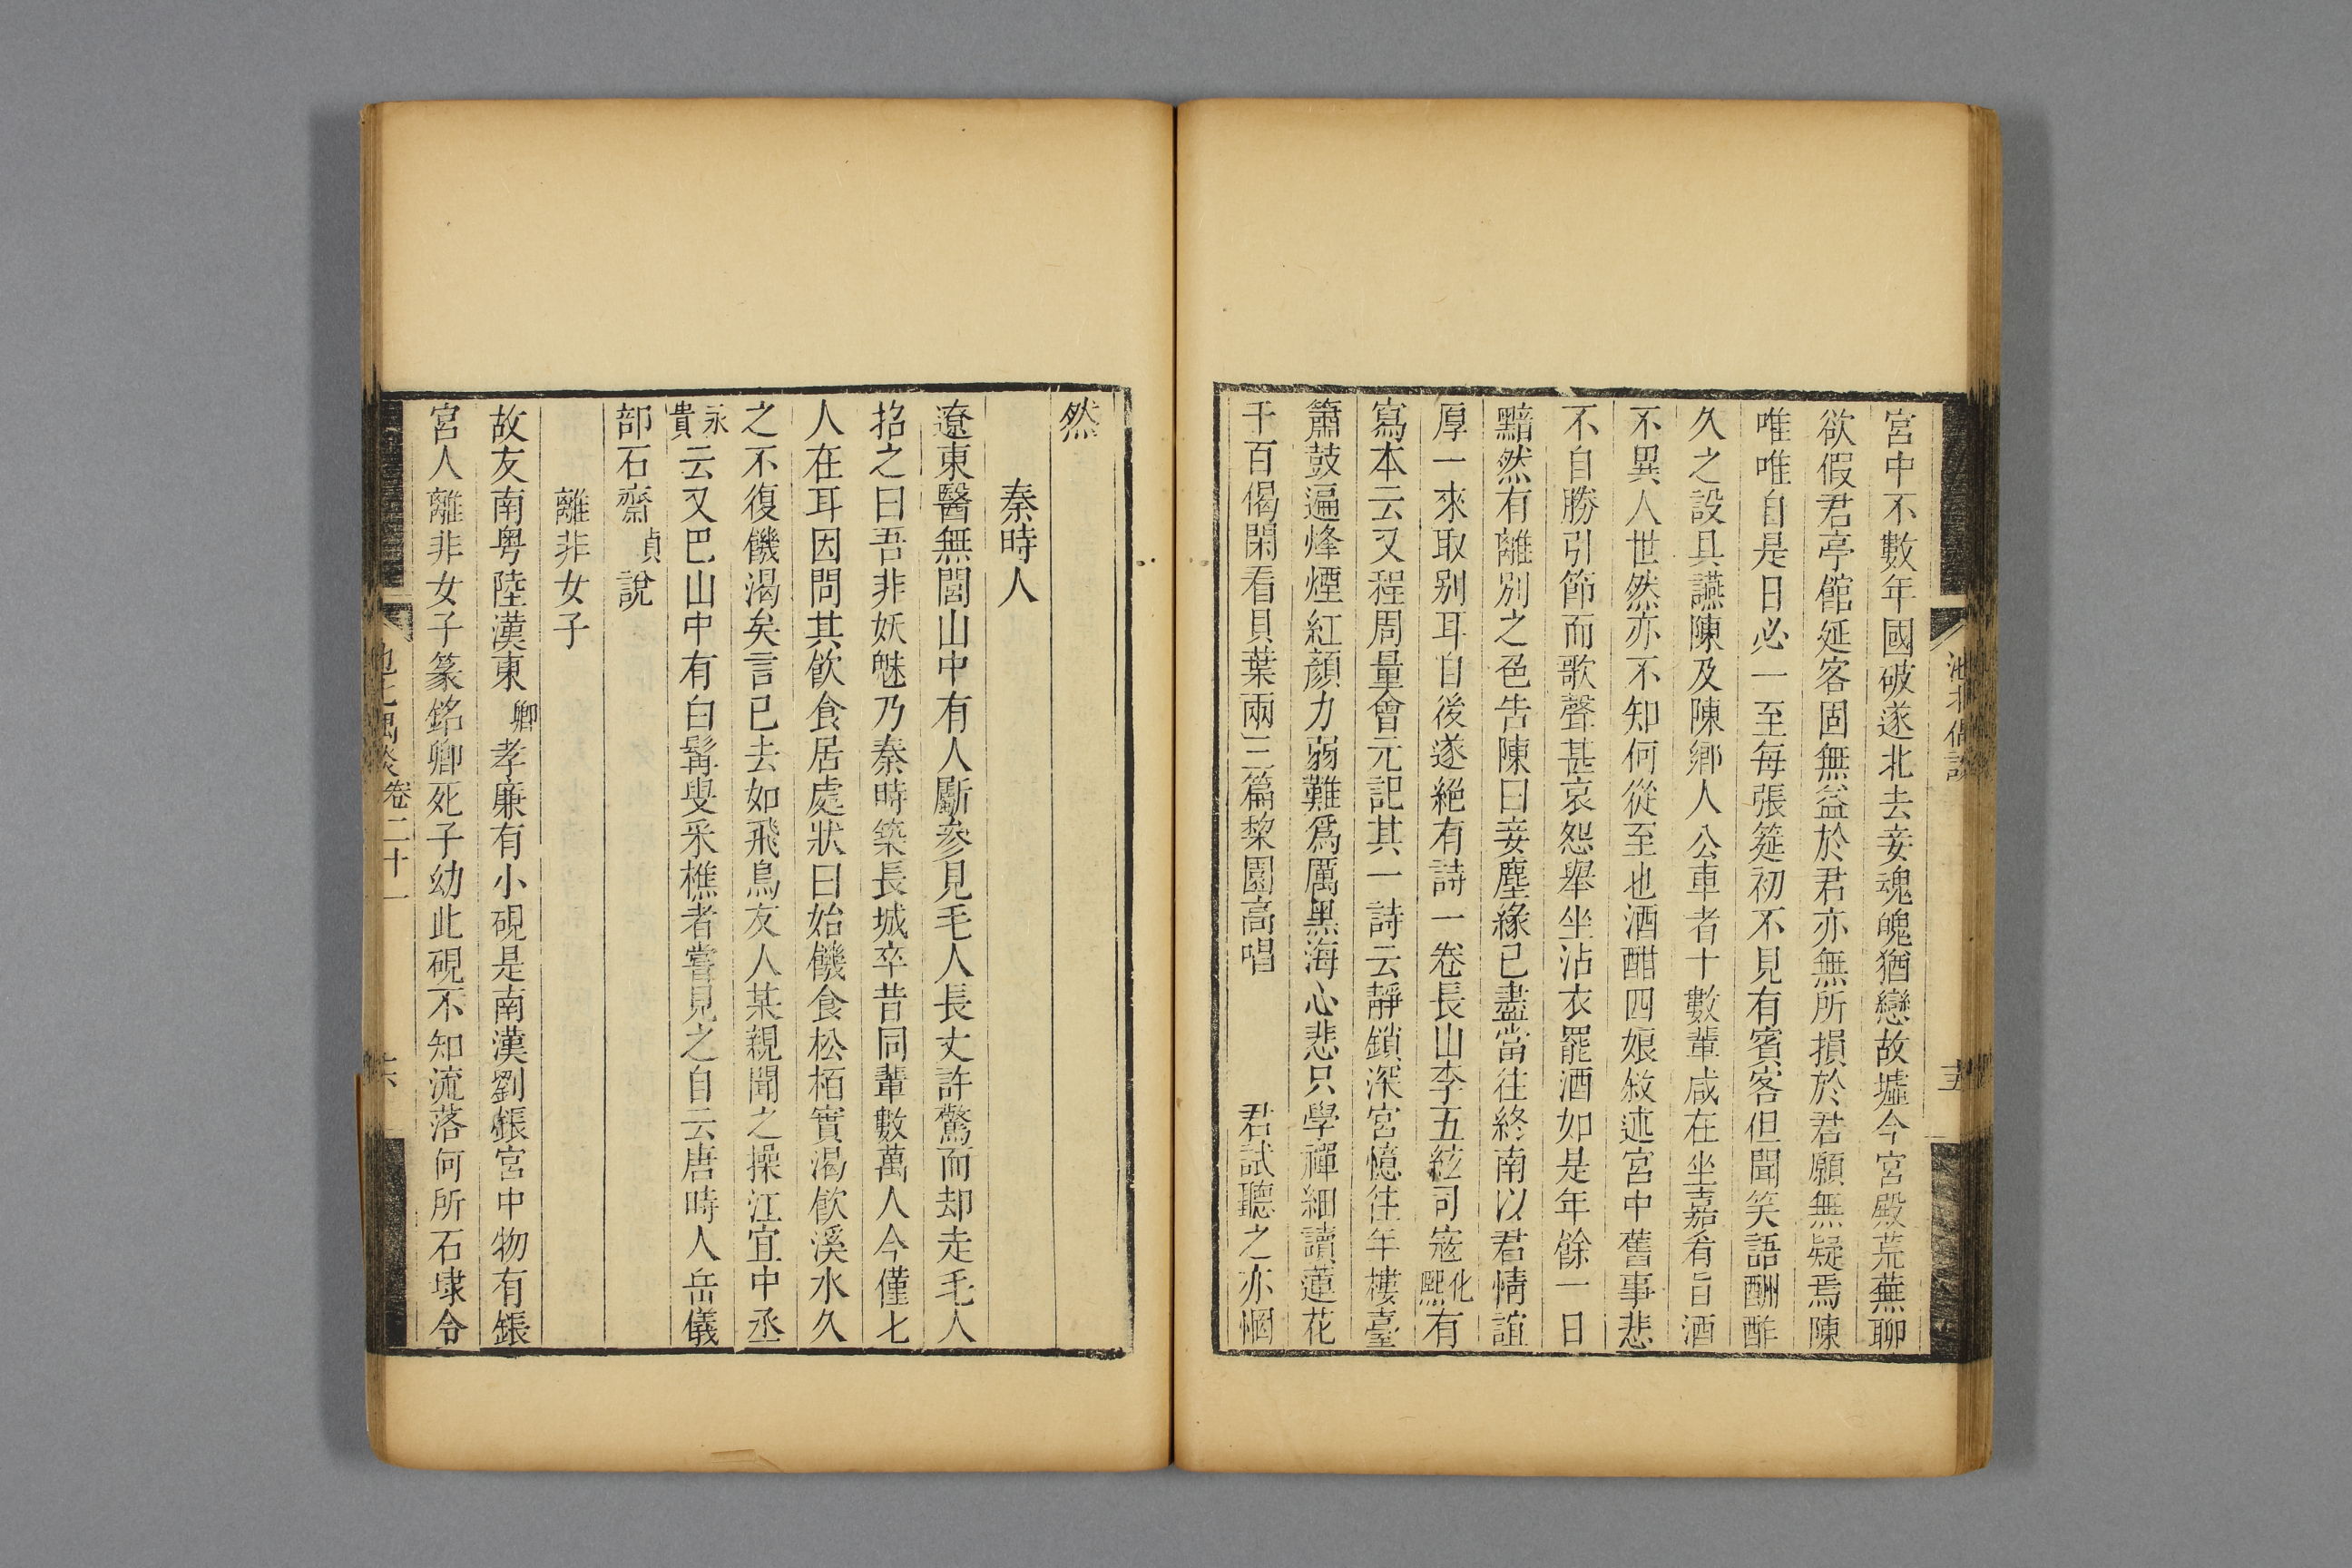 宮中不數年國破遂北去妾魂魄猶戀故墟今宮殿荒蕪聊
欲假君亭館延客固無益於君亦無所損於君願無疑焉陳
唯唯自是日必一至每張筵初不見有賓客但聞笑語酬酢
久之設具讌陳及陳鄉人公車者十數輩咸在坐嘉肴旨酒
不異人世然亦不知何從至也酒酣四娘敘述宮中舊事悲
不自勝引節而歌聲甚哀怨舉坐沾衣罷酒如是年餘一日
黯然有離別之色告陳曰妾塵緣已盡當往終南以君情誼
厚一來取别耳自後遂絕有詩一卷長山李五絃司寇化熙有
寫本云又程周量會元記其一詩云靜鎖深宮憶往年樓臺
簫鼓逼烽煙紅顏力弱難爲厲黑海心悲只學禪細讀蓮花
千百偈閑看貝葉兩三篇棃園高唱 君試聽之亦惘
然
秦時人
遼東醫無閭山中有人斸參見毛人長丈許驚而却走毛人
招之曰吾非妖魅乃秦時築長城卒昔同輩數萬人今僅七
人在耳因問其飲食居處狀曰始饑食松栢實渴飲溪水久
之不復饑渴矣言已去如飛鳥友人某親聞之操江宜中丞
永貴云又巴山中有白髯叟釆樵者嘗見之自云唐時人岳儀
部石齋貞說
離非女子
故友南粤陸漢東卿孝廉有小硯是南漢劉鋹宮中物有鋹
宮人離非女子篆銘卿死子幼此硯不知流落何所石埭令
卷二十一